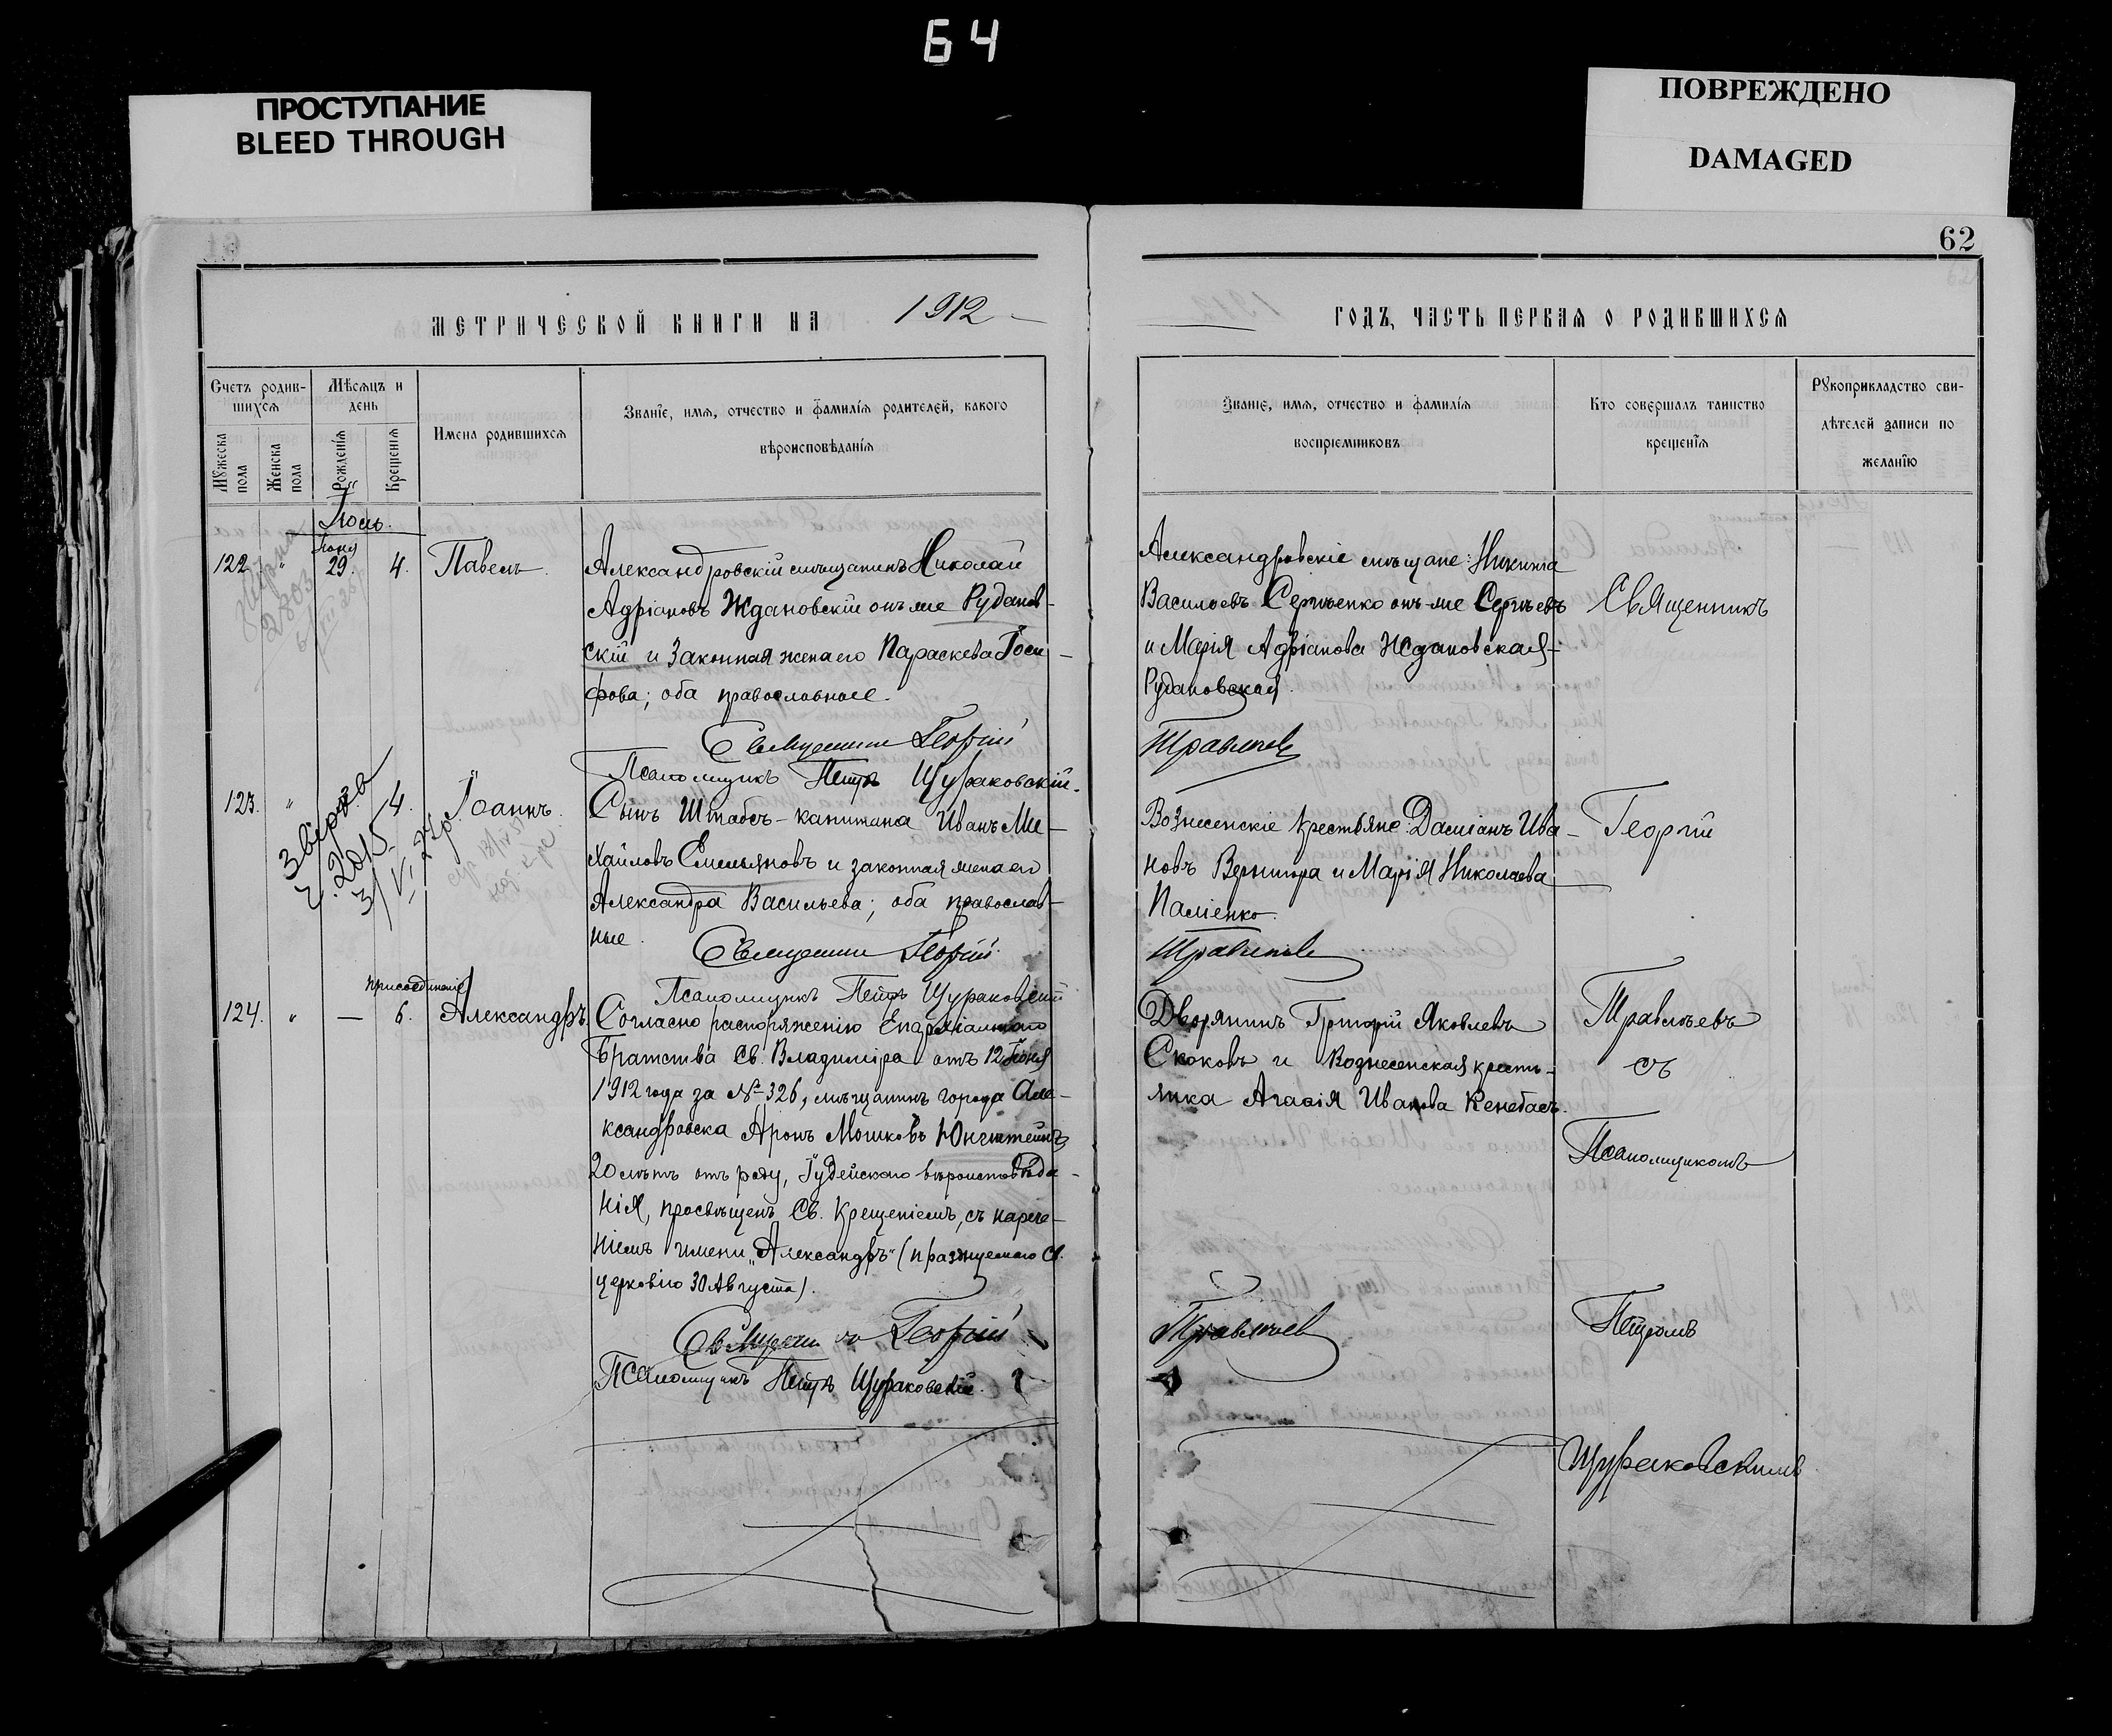 64
ПРОСТУПАНИЕ
BLEED THROUGH
ПОВРЕЖДЕНО
DAMAGED
62
МЕТРИЧЕСКОЙ КНИГИ НА 1912
ГОДЪ, ЧАСТЬ ПЕРВАЯ О РОДИВШИХСЯ
Счетъ родив-
шихся
Мужеска пола
Женска пола
Мѣсяцъ и
день
Рожденія
Крещенія
Имена родившихся
Званіе, имя, отчество и фамилія родителей, какого
вѣроисповѣданія
Званіе, имя, отчество и фамилія
воспріемниковъ
Кто совершалъ таинство
крещенія
Рукоприкладство сви-
дѣтелей записи по
желанію
Іюль.
Іюня
122. " 29. 4. Павелъ.
Александровскій мѣщанинъ Николай
Адріановъ Ждановскій онъ же Руданов-
скій и законная жена его Параскева Іоси-
фова; оба православные.
Священникъ Георгій
Псаломщикъ Петръ Щураковскій.
Александровскіе мѣщане: Никита
Васильевъ Сергѣенко онъ-же Сергѣевъ
и Марія Адріанова Ждановская-
Рудановская.
Травлѣевъ
Священникъ
123. " 4. Іоаннъ.
Звірка
ч. 2015
3/VI 27 р.
Сынъ Штабсъ-капитана Иванъ Ми-
хайловъ Емельяновъ и законная жена его
Александра Васильева; оба православ-
ные.
Священникъ Георгій
Псаломщикъ Петръ Щураковскій
Вознесенскіе крестьяне: Даміанъ Ива-
новъ Вернигора и Марія Николаева
Паліенко.
Травлѣевъ
Георгій
присоединеніе
124. " — 6. Александръ.
Согласно распоряженію Епархіальнаго
Братства Св. Владиміра отъ 12 Іюня
1912 года за № 326, мѣщанинъ города Але-
ксандровска Аронъ Мошковъ
20 лѣтъ отъ роду, Іудейскаго вѣроисповѣда-
нія, просвѣщенъ Св. Крещеніемъ, съ нарече-
ніемъ имени „Александръ“ (празднуемаго Св.
церковію 30 Августа).
Священникъ Георгій
Псаломщикъ Петръ Щураковскій.
Дворянинъ Григорій Яковлевъ
Скоковъ и Вознесенская кресть-
янка Агафія Иванова Кенебасъ.
Травлѣевъ
Травлѣевъ
съ
Псаломщикомъ
Петромъ
Щураковскимъ